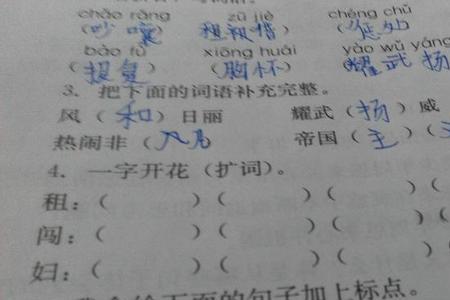 chǎo rǎng zū jiè chéng chǔ
(吵嚷) ( ) ( 处
bào fù xiōng huái yào wǔ yáng
(报复) (胸怀) (耀武扬
3. 把下面的词语补充完整。
风(和)日丽 耀武(扬)威
热闹非(凡 帝国(主)(
4. 一字开花(扩词)。
租:( )( )(
闯:( )( )(
妇:( )( )
给下面的句子加上标点。